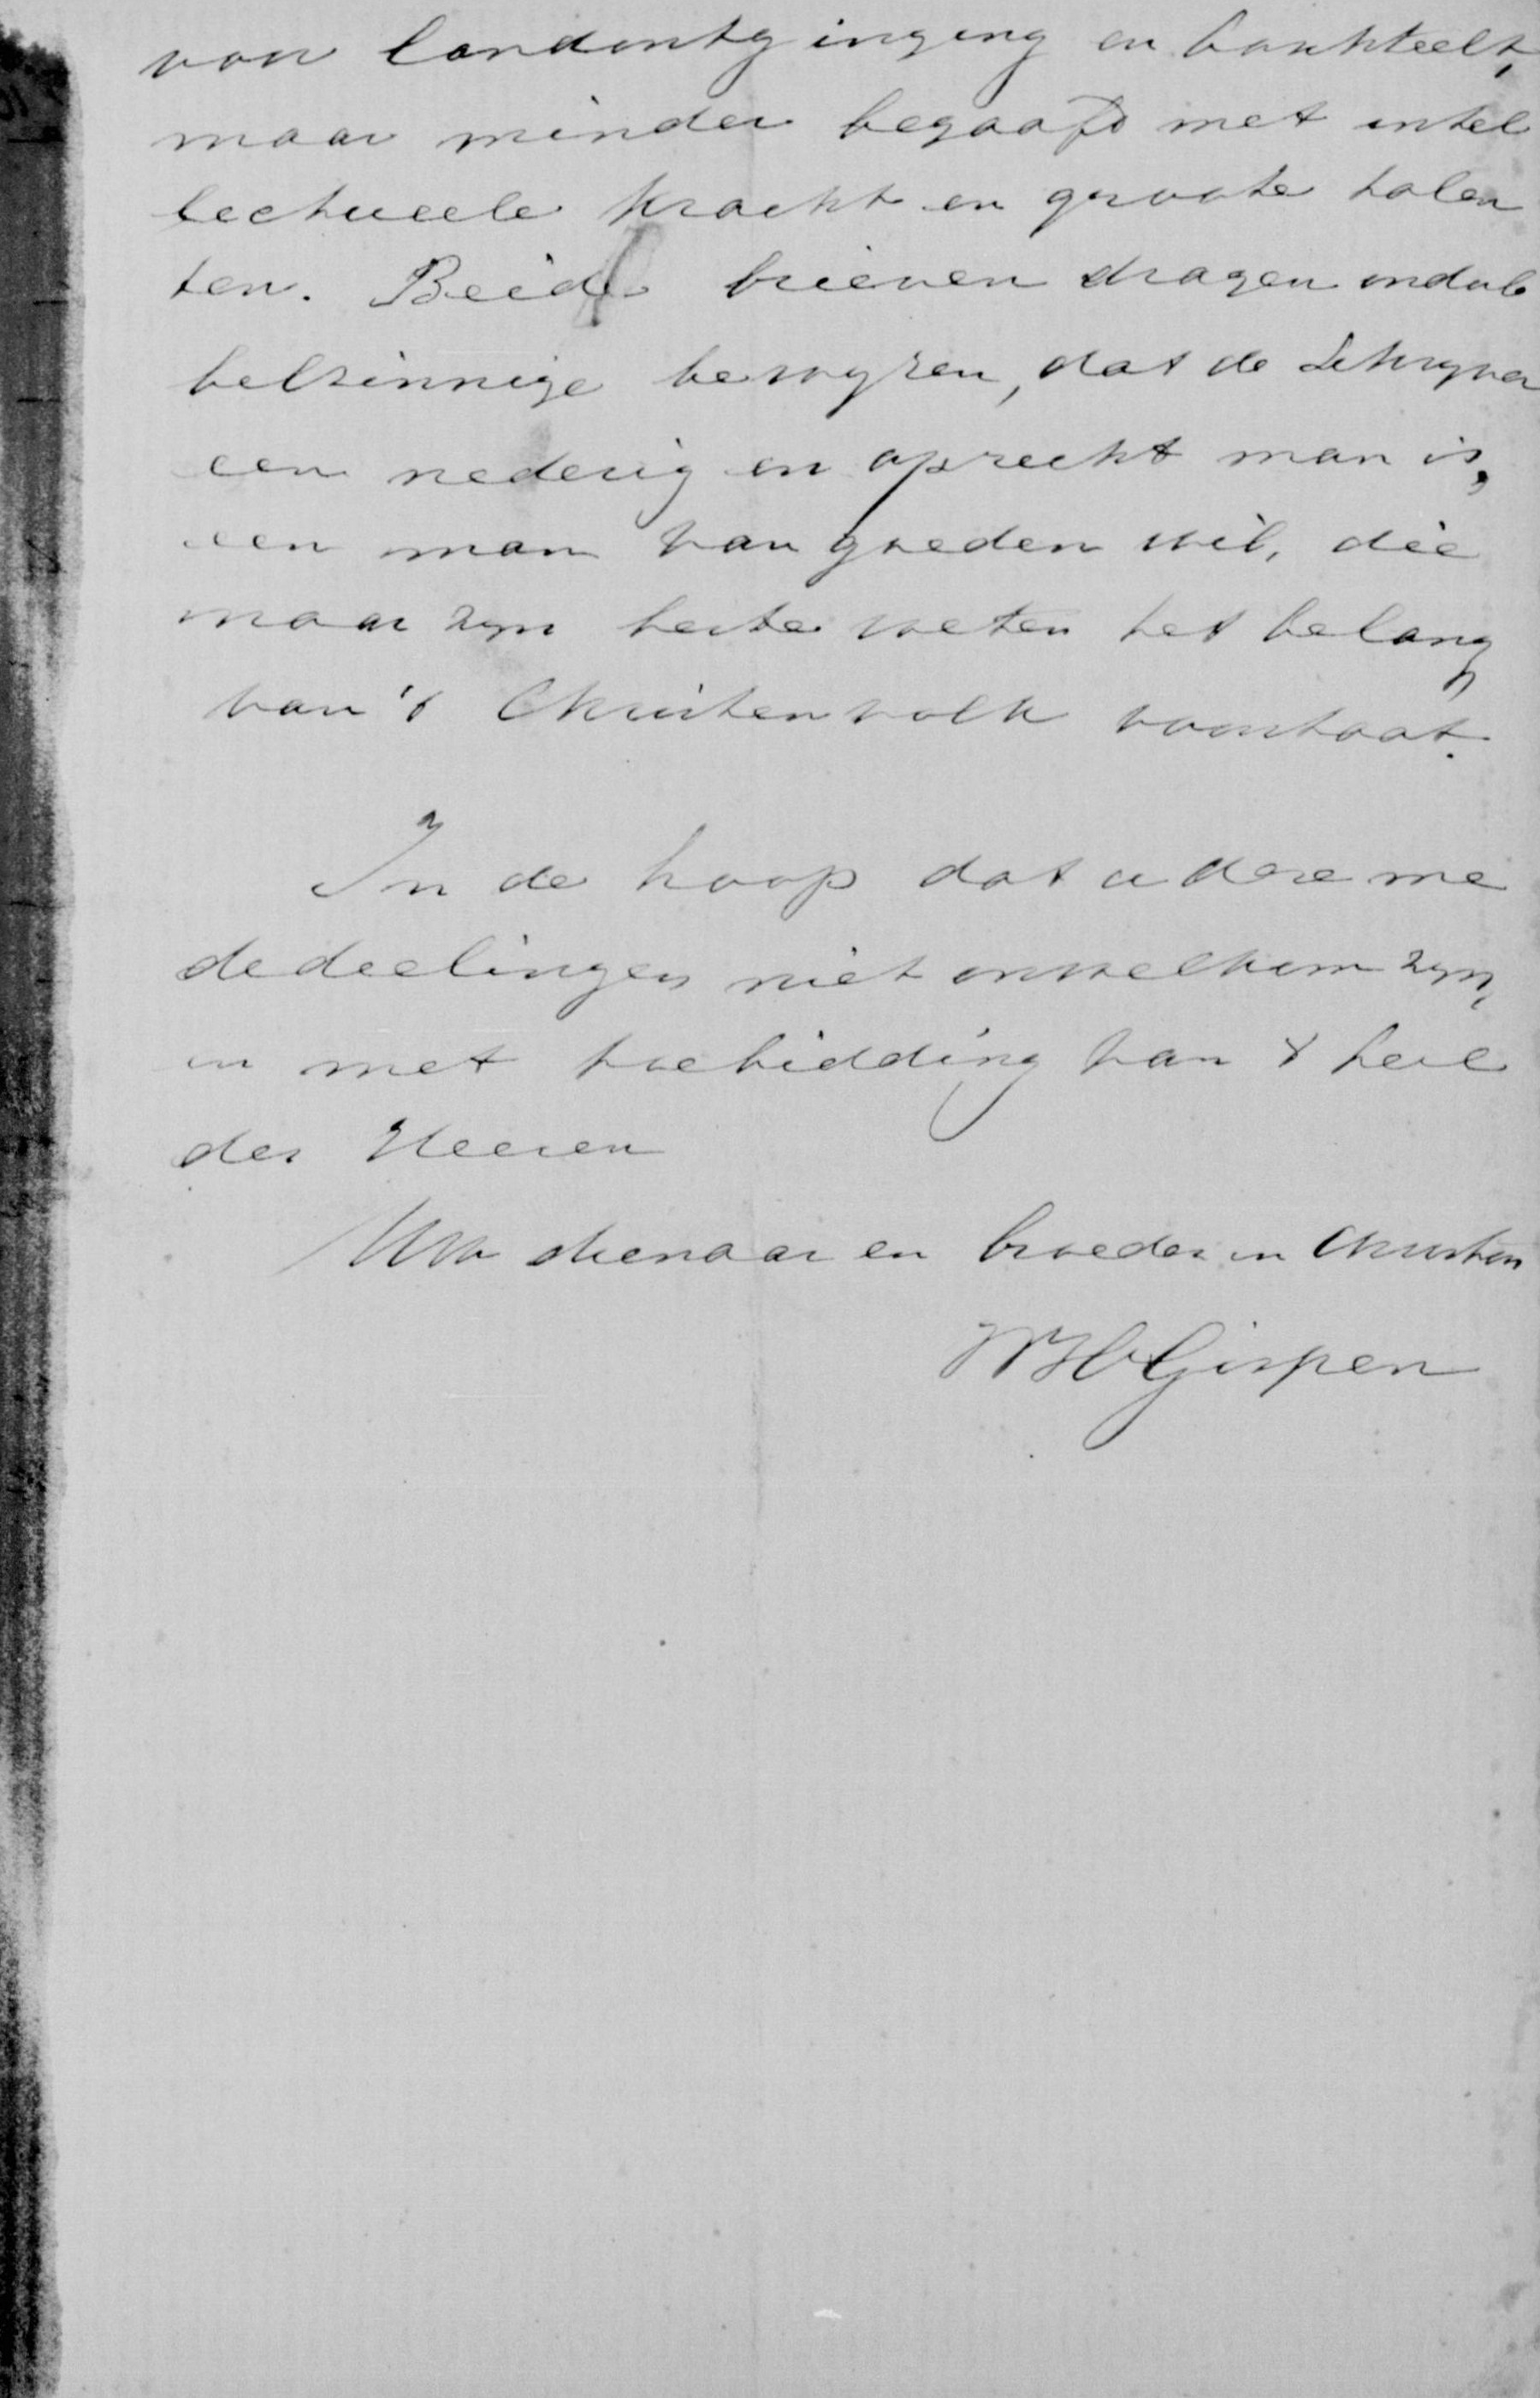 voor landontginging en boschteelt,
maar minder begaafd met intel
lectueele kracht en groote talen
ten. Beide brieven dragen ondub
belzinnige bewyzen, dat de Schryver
een nederig en oprecht man is,
een man van goeden wil, die
naar zyn beste weten het belang
van 't Christenvolk voorstaat.
In de hoop dat u deze me
dedeelingen niet onwelkom zyn,
en met toebidding van 't heil
des Heeren
Uw dienaar en broeder in Christus
WHGispen